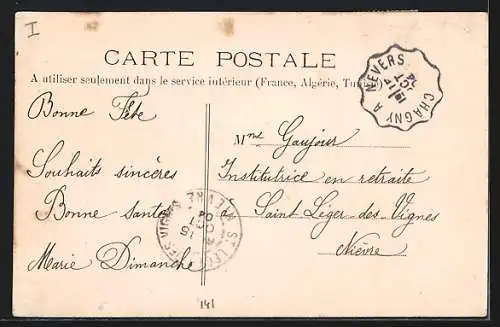 I
CARTE POSTALE
A utiliser seulement dans le service intérieur (France, Algérie, Tunisie)
CHAGNY A NEVERS
Bonne Fête
Souhaits sincères
Bonne santé
Marie Dimanche
Mme Gaujour
Institutrice en retraite
Saint Léger-des-Vignes
Nièvre
141